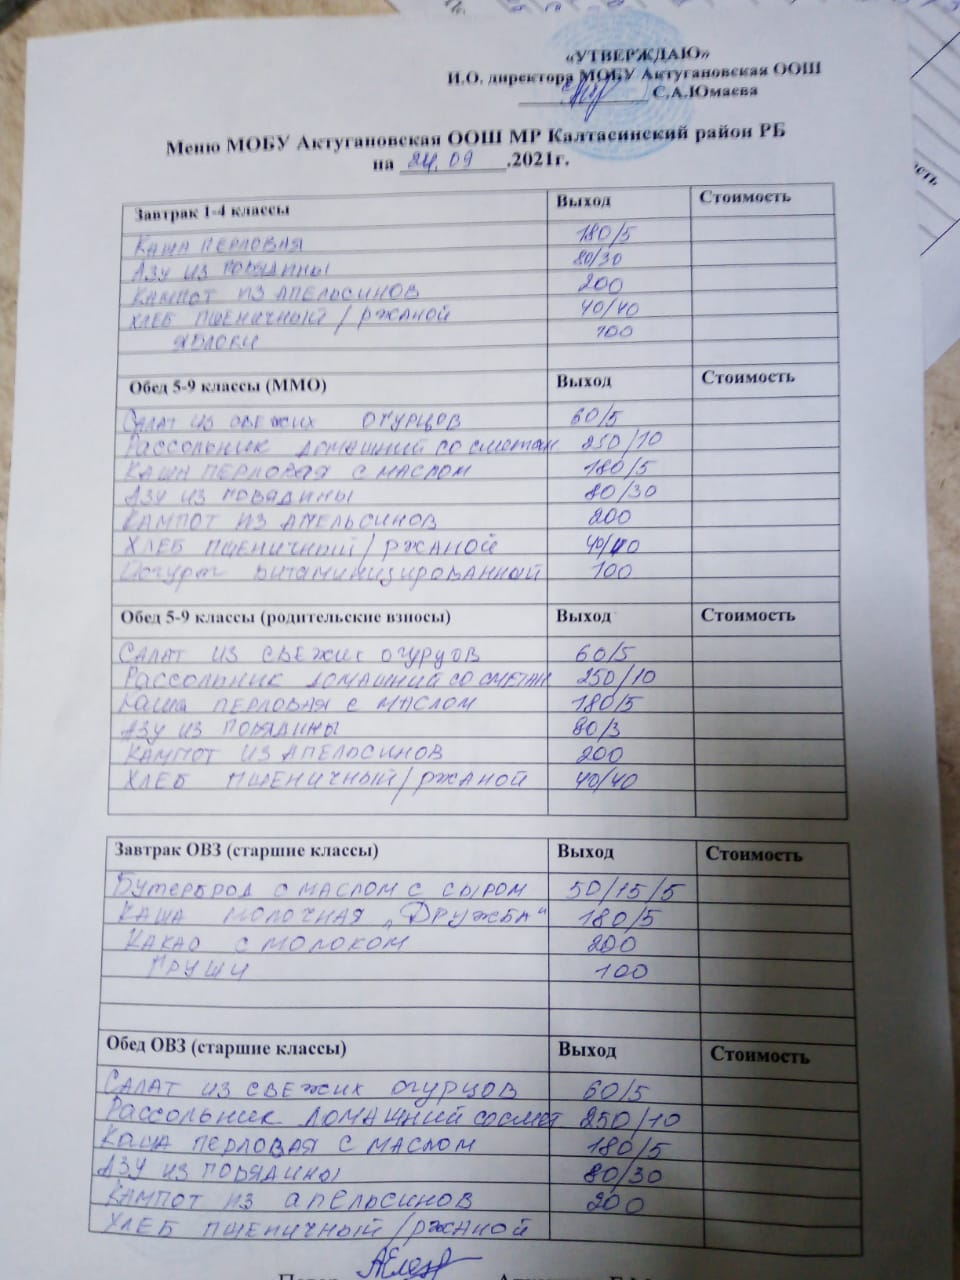 «УТВЕРЖДАЮ»
И.О. директора МОБУ Актугановская ООШ
С.А.Юмаева
Меню МОБУ Актугановская ООШ МР Калтасинский район РБ
на 24.09.2021г.
Завтрак 1-4 классы Выход Стоимость
Каша перловая 180/5
Азу из говядины 80/30
Кампот из апельсинов 200
Хлеб пшеничный/ржаной 40/40
Яблоки 100
Обед 5-9 классы (ММО) Выход Стоимость
Салат из свежих огурцов 60/5
Рассольник домашний со сметан 250/10
Каша перловая с маслом 180/5
Азу из говядины 80/30
Кампот из апельсинов 200
Хлеб пшеничный/ржаной 40/40
Йогурт витаминизированный 100
Обед 5-9 классы (родительские взносы) Выход Стоимость
Салат из свежих огурцов 60/5
Рассольник домашний со сметан 250/10
Каша перловая с маслом 180/5
Азу из говядины 80/3
Кампот из апельсинов 200
Хлеб пшеничный/ржаной 40/40
Завтрак ОВЗ (старшие классы) Выход Стоимость
Бутерброд с маслом с сыром 50/15/5
Каша молочная „Дружба“ 180/5
Какао с молоком 200
Груши 100
Обед ОВЗ (старшие классы) Выход Стоимость
Салат из свежих огурцов 60/5
Рассольник домашний со смет 250/10
Каша перловая с маслом 180/5
Азу из говядины 80/30
Кампот из апельсинов 200
Хлеб пшеничный/ржаной